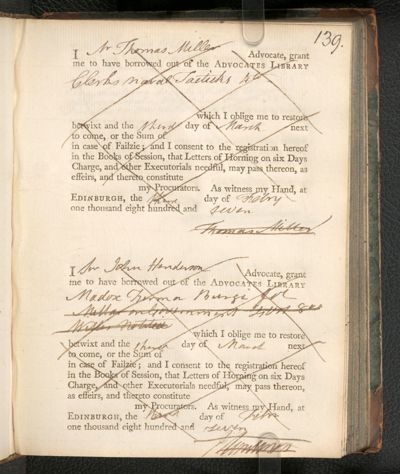 139.
I Mr Thomas Miller Advocate, grant
me to have borrowed out of the ADVOCATES LIBRARY
Clerks naval Tacticks 4to
which I oblige me to restore
betwixt and the third day of March next
to come, or the Sum of
in case of Failzie; and I consent to the registration hereof
in the Books of Session, that Letters of Horning on six Days
Charge, and other Executorials needful, may pass thereon, as
effeirs, and thereto constitute
my Procurators. As witness my Hand, at
EDINBURGH, the third day of Febry
one thousand eight hundred and seven
Thomas Miller
I Mr John Henderson Advocate, grant
me to have borrowed out of the ADVOCATES LIBRARY
Madox Firma Burgi fol
Millar on Government
which I oblige me to restore
betwixt and the third day of March next
to come, or the Sum of
in case of Failzie; and I consent to the registration hereof
in the Books of Session, that Letters of Horning on six Days
Charge, and other Executorials needful, may pass thereon,
as effeirs, and thereto constitute
my Procurators. As witness my Hand, at
EDINBURGH, the third day of Febry
one thousand eight hundred and seven